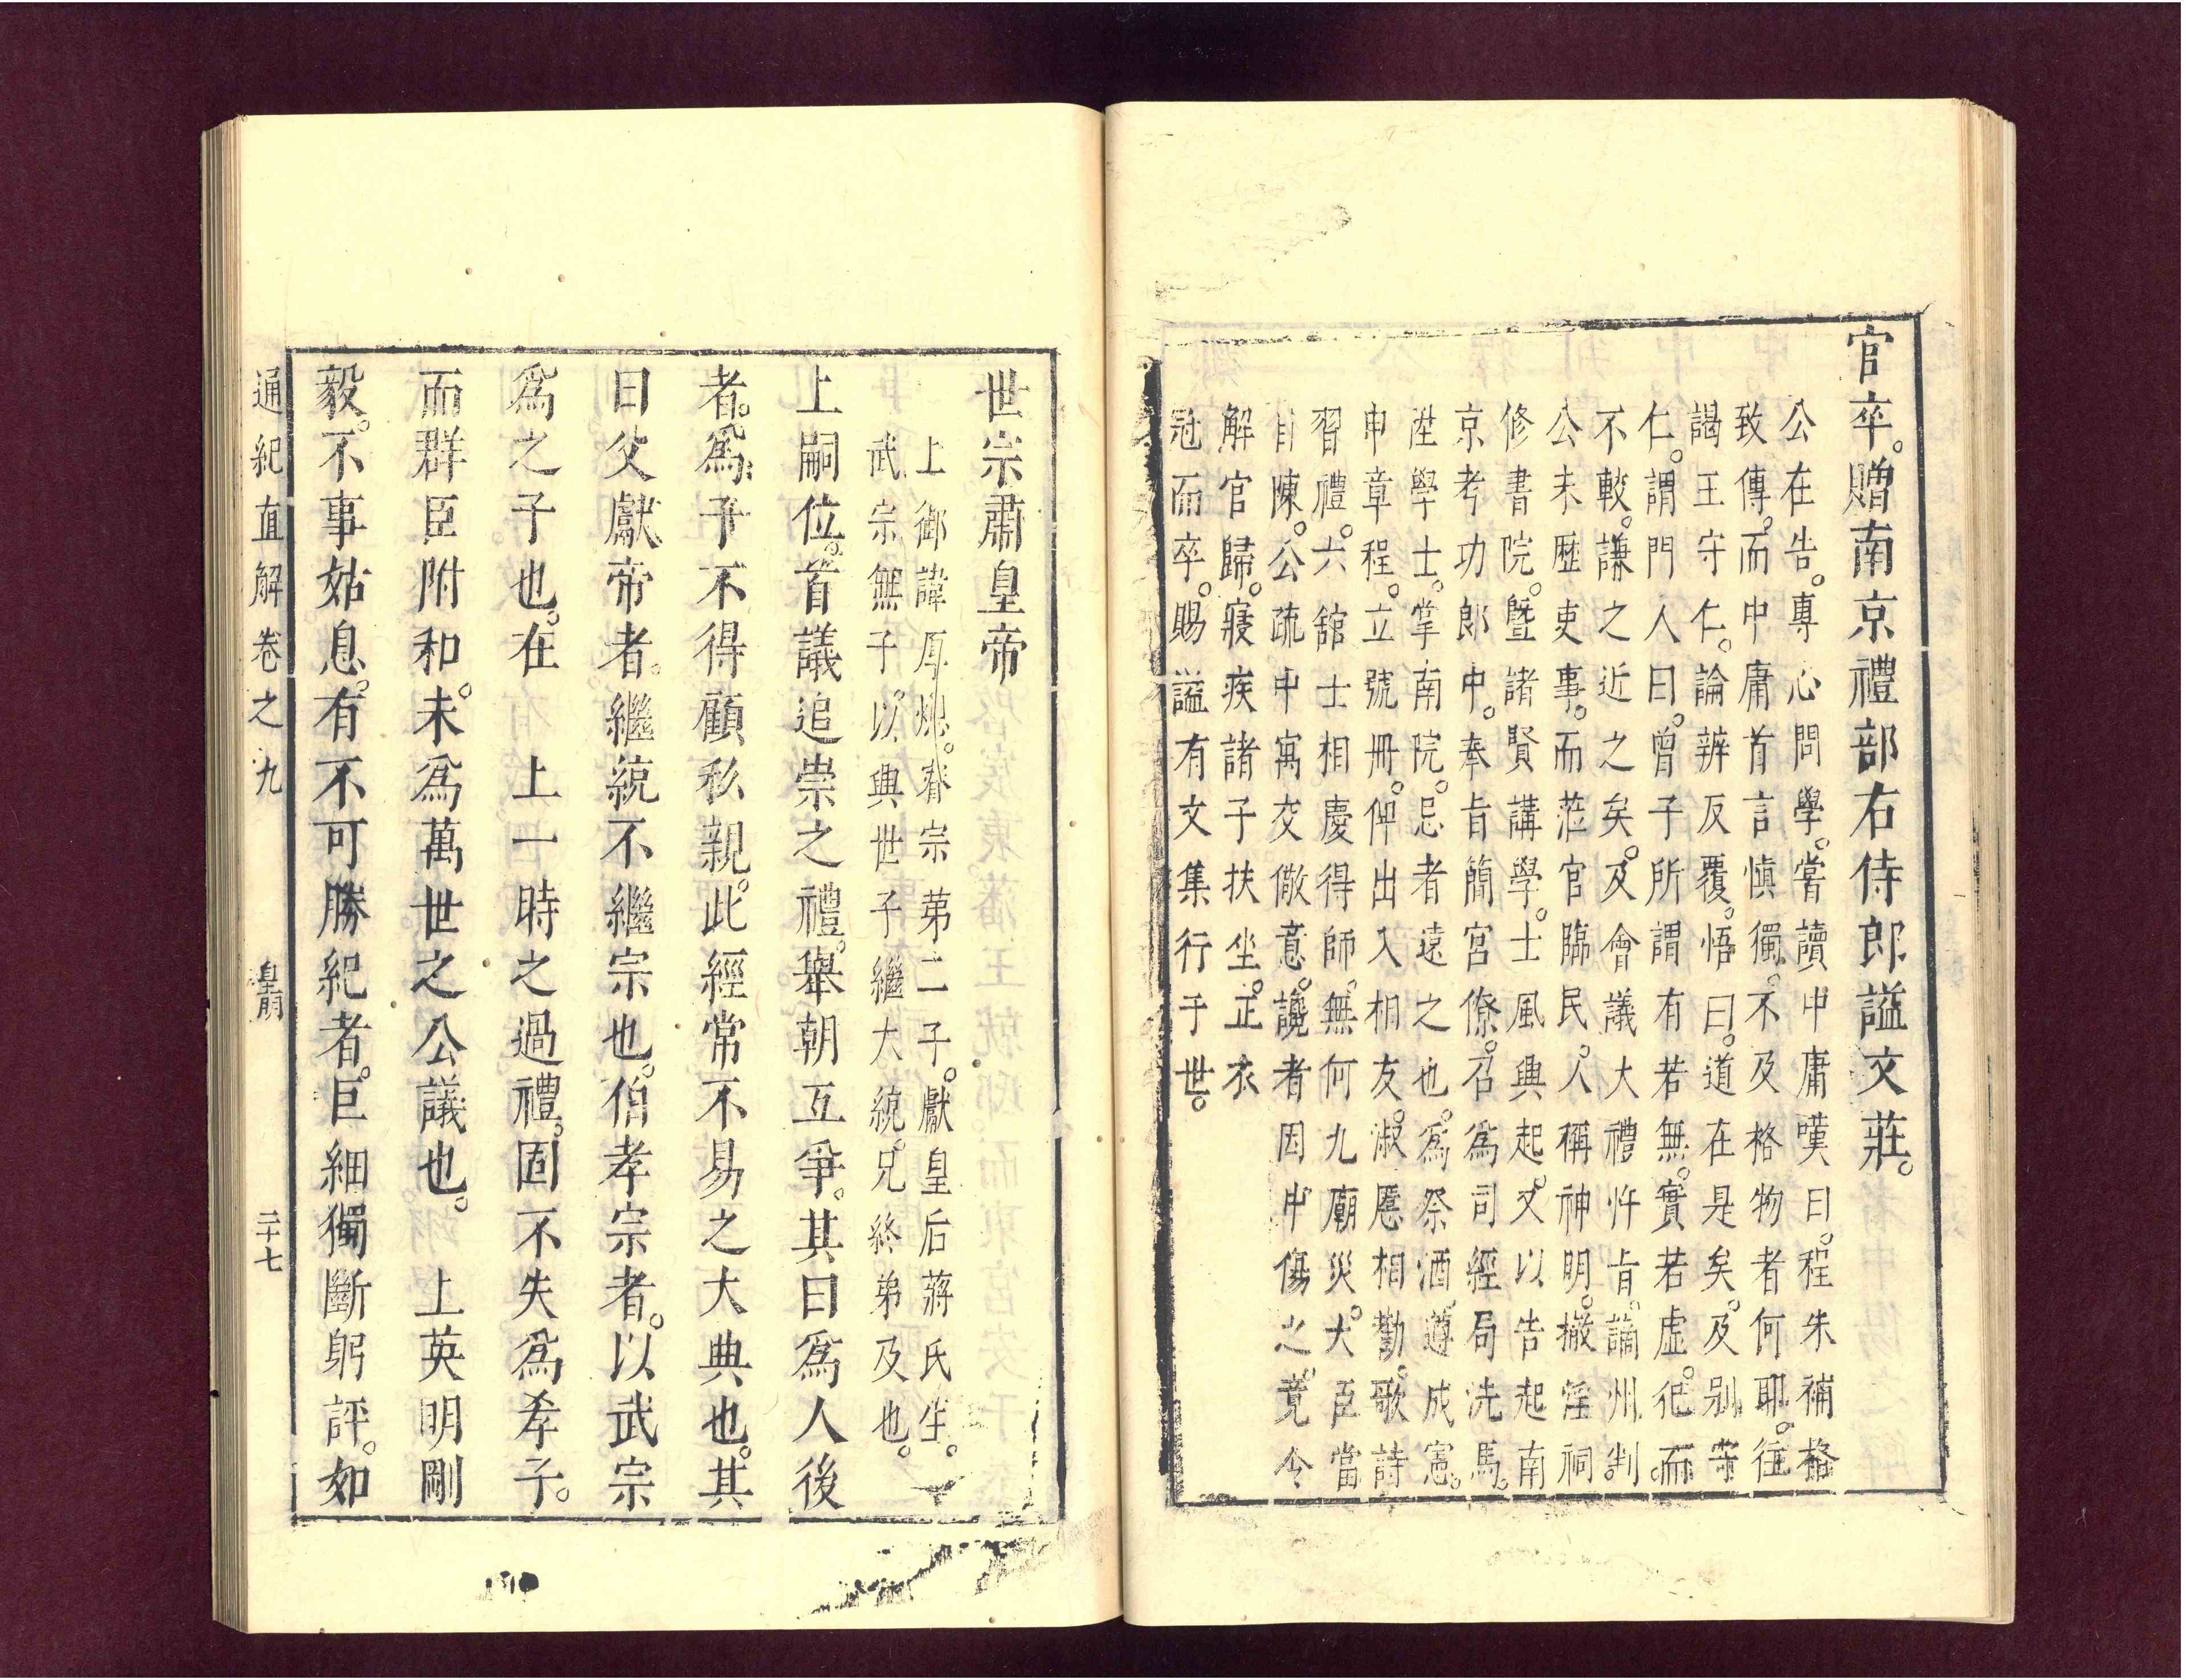 官卒。贈南京禮部右侍郎謚文莊。
公在告。專心問學。嘗讀中庸嘆曰。程朱補格
致傳。而中庸首言慎獨。不及格物者何耶。往
謁王守仁。論辨反覆。悟曰。道在是矣。及别守
仁。謂門人曰。曾子所謂有若無。實若虛。犯而
不較。謙之近之矣。及會議大禮忤旨。謫州判。
公未歷吏事。而蒞官臨民。人稱神明。撤淫祠
修書院。暨諸賢講學。士風興起。又以告起南
京考功郎中。奉旨簡宮僚。召為司經局洗馬。
陞學士。掌南院。忌者遠之也。為祭酒。遵成憲。
申章程。立號冊。俾出入相友。淑慝相勸。歌詩
習禮。六舘士相慶得師。無何九廟災。大臣當
自陳。公疏中寓交儆意。讒者因中傷之。竟令
解官歸。寢疾諸子扶坐。正衣
冠而卒。賜謚有文集行于世。
世宗肅皇帝
上御諱厚熜。睿宗第二子。獻皇后蔣氏生。
武宗無子。以興世子繼大統。兄終弟及也。
上嗣位。首議追崇之禮。舉朝互爭。其曰為人後
者。為于不得顧私親。此經常不易之大典也。其
曰父獻帝者。繼統不繼宗也。伯孝宗者。以武宗
為之子也。在　上一時之過禮。固不失為孝子。
而群臣附和。未為萬世之公議也。　上英明剛
毅。不事姑息。有不可勝紀者。巨細獨斷躬評。如
通紀直解卷之九　皇明　二十七